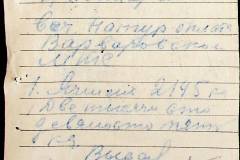 Сет Натур оплата
Варваровской
МТС
1. Ячменя 2195 кг
Две тысячи сто
девяносто пять
кг.
Выдал